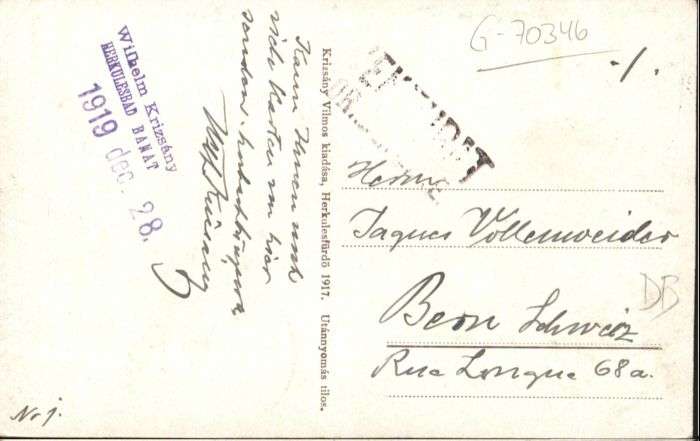 Wilhelm Krizsány
HERKULESBAD BANAT
1919 dec. 28.
Kann Ihnen noch
viele Karten von hier
senden.
Krizsány Vilmos kiadása, Herkulesfürdő 1917. Utánnyomás tilos.
G-70346
-/.
Herrn
Jaques Vollenweider
Bern Schweiz
Rue Longue 68a.
DB
No 1.